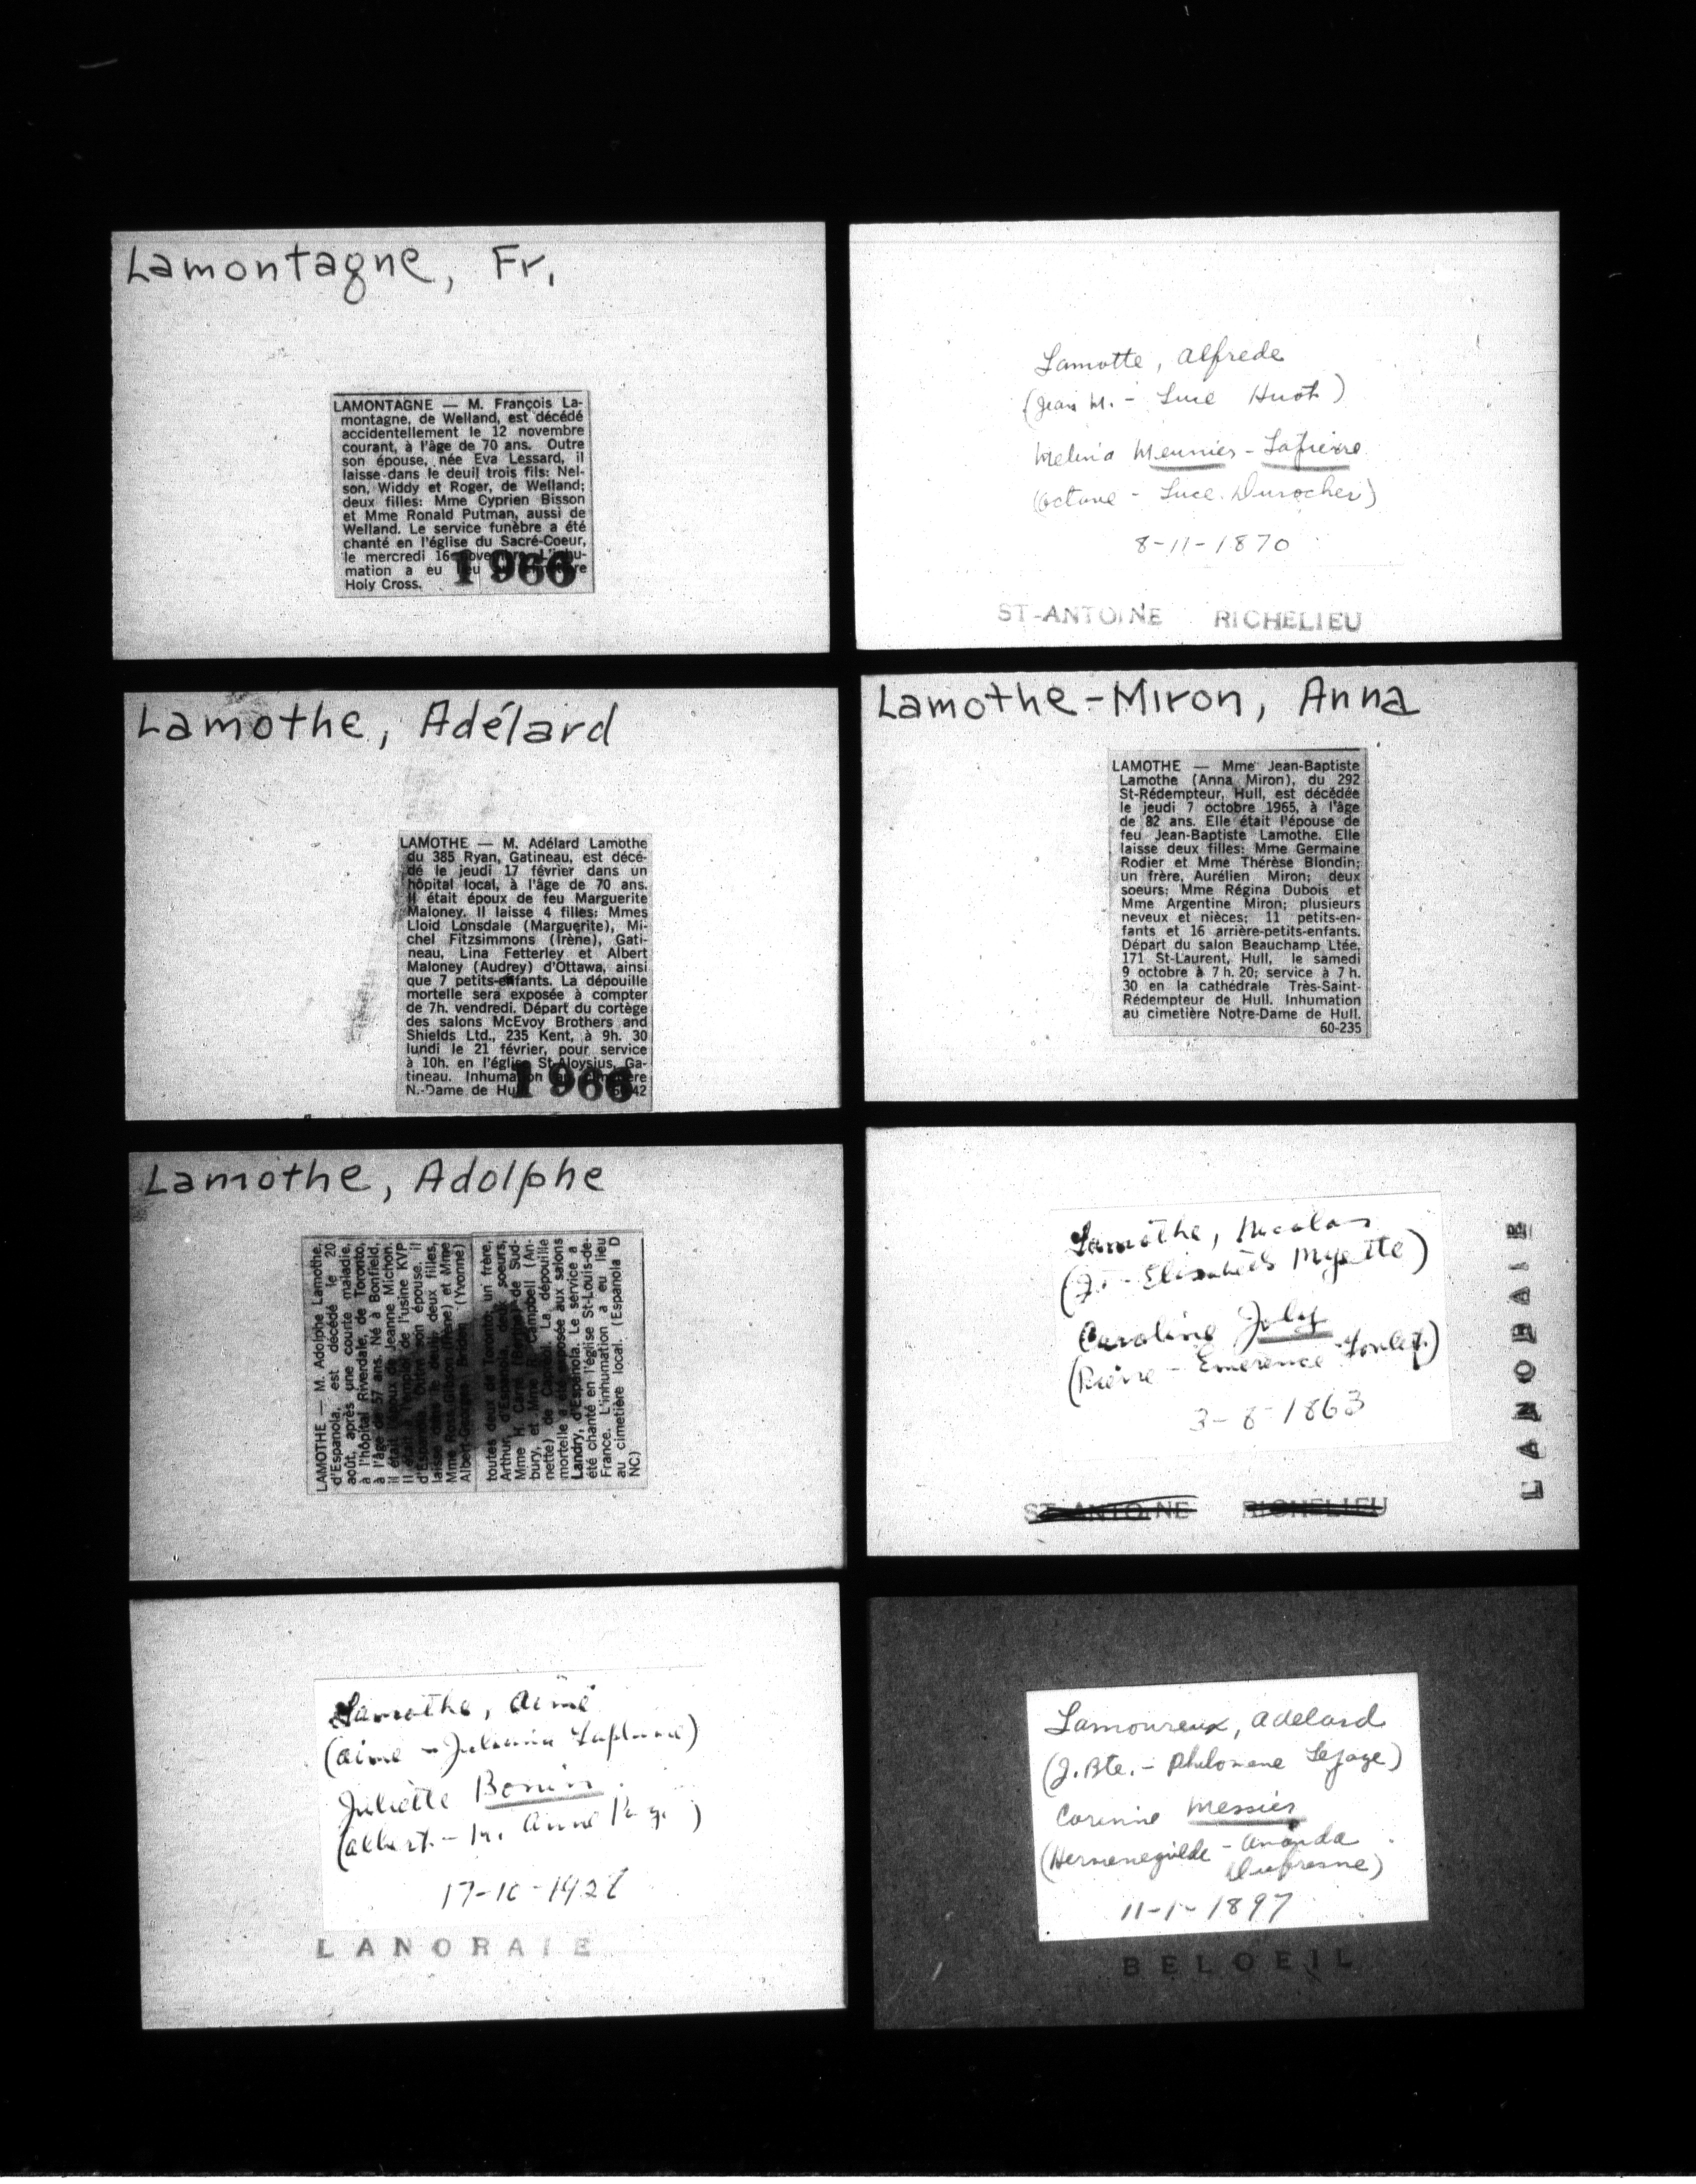 Lamontagne, Fr.
LAMONTAGNE — M. François La-
montagne, de Welland, est décédé
accidentellement le 12 novembre
courant, à l'âge de 70 ans. Outre
son épouse, née Eva Lessard, il
laisse dans le deuil trois fils: Nel-
son, Widdy et Roger, de Welland;
deux filles: Mme Cyprien Bisson
et Mme Ronald Putman, aussi de
Welland. Le service funèbre a été
chanté en l'église du Sacré-Coeur,
le mercredi 16 novembre. L'inhu-
mation a eu lieu
Holy Cross.
1966
Lamotte, Alfrede
(Jean M. - Luce Huot)
Melina Meunier - Lapierre
(Octave - Luce Durocher)
8-11-1870
ST-ANTOINE RICHELIEU
Lamothe, Adélard
LAMOTHE — M. Adélard Lamothe
du 385 Ryan, Gatineau, est décé-
dé le jeudi 17 février dans un
hôpital local, à l'âge de 70 ans.
Il était époux de feu Marguerite
Maloney. Il laisse 4 filles: Mmes
Lloid Lonsdale (Marguerite), Mi-
chel Fitzsimmons (Irène), Gati-
neau, Lina Fetterley et Albert
Maloney (Audrey) d'Ottawa, ainsi
que 7 petits-enfants. La dépouille
mortelle sera exposée à compter
de 7h. vendredi. Départ du cortège
des salons McEvoy Brothers and
Shields Ltd., 235 Kent, à 9h. 30
lundi le 21 février, pour service
à 10h. en l'église St-Aloysius, Ga-
tineau. Inhumation
N.-Dame de Hull
1966
Lamothe-Miron, Anna
LAMOTHE — Mme Jean-Baptiste
Lamothe (Anna Miron), du 292
St-Rédempteur, Hull, est décédée
le jeudi 7 octobre 1965, à l'âge
de 82 ans. Elle était l'épouse de
feu Jean-Baptiste Lamothe. Elle
laisse deux filles: Mme Germaine
Rodier et Mme Thérèse Blondin;
un frère, Aurélien Miron; deux
soeurs: Mme Régina Dubois et
Mme Argentine Miron; plusieurs
neveux et nièces; 11 petits-en-
fants et 16 arrière-petits-enfants.
Départ du salon Beauchamp Ltée,
171 St-Laurent, Hull, le samedi
9 octobre à 7 h. 20; service à 7 h.
30 en la cathédrale Très-Saint-
Rédempteur de Hull. Inhumation
au cimetière Notre-Dame de Hull.
60-235
Lamothe, Adolphe
LAMOTHE — M. Adolphe Lamothe,
d'Espanola, est décédé le 20
août, après une courte maladie,
à l'hôpital Riverdale, de Toronto,
à l'âge de 57 ans. Né à Bonfield,
il était époux de Jeanne Michon.
Il était employé de l'usine KVP
d'Espanola. Outre son épouse, il
laisse dans le deuil deux filles,
Mme Ross (Irène) et Mme
Albert-Georges (Yvonne)
toutes deux de Toronto, un frère,
Arthur, d'Espanola, deux soeurs,
Mme H. de Sud-
bury, et Mme R. Campbell (An-
nette) de La dépouille
mortelle a été exposée aux salons
Landry, d'Espanola. Le service a
été chanté en l'église St-Louis-de-
France. L'inhumation a eu lieu
au cimetière local. (Espanola D
NC)
Lamothe, Nicolas
(J. - Elisabeth Myette)
Caroline Joly
(Pierre - Emerence
3-8-1863
ST-ANTOINE RICHELIEU
LANORAIE
Lamothe, Aimé
(Aime - Julienne Laplume)
Juliette Bonin
(Albert - M. Anne
LANORAIE
Lamoureux, Adelard
(J. Bte. - Philomene Lepage)
Corinne Messier
(Hermenegilde - Amanda
Dufresne)
11-1-1897
BELOEIL